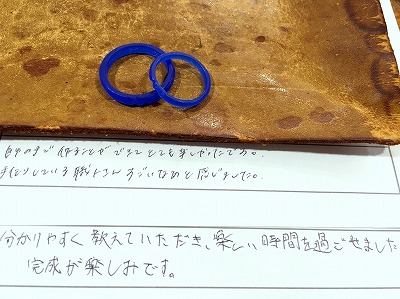 自分の手で作ることができてとても楽しかったです。
手作りしている職人さんすごいなあと感じました。
分かりやすく教えていただき、楽しい時間を過ごせました
完成が楽しみです。